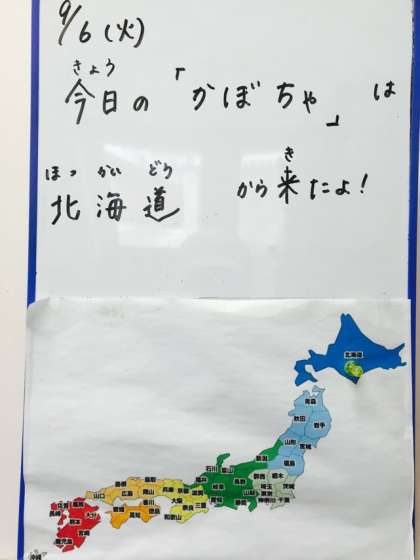 9/6(火)
きょう
今日の「かぼちゃ」は
ほっかいどう
北海道
き
から来たよ!
北海道
青森
秋田 岩手
山形 宮城
福島
新潟
石川 富山
福井 長野 群馬 栃木
岐阜 埼玉 茨城
山梨 東京
愛知 静岡 神奈川 千葉
島根 鳥取 兵庫 京都 滋賀
山口 広島 岡山 大阪 奈良 三重
香川 和歌山
愛媛 徳島
高知
佐賀 福岡
長崎 大分
熊本
宮崎
鹿児島
沖縄